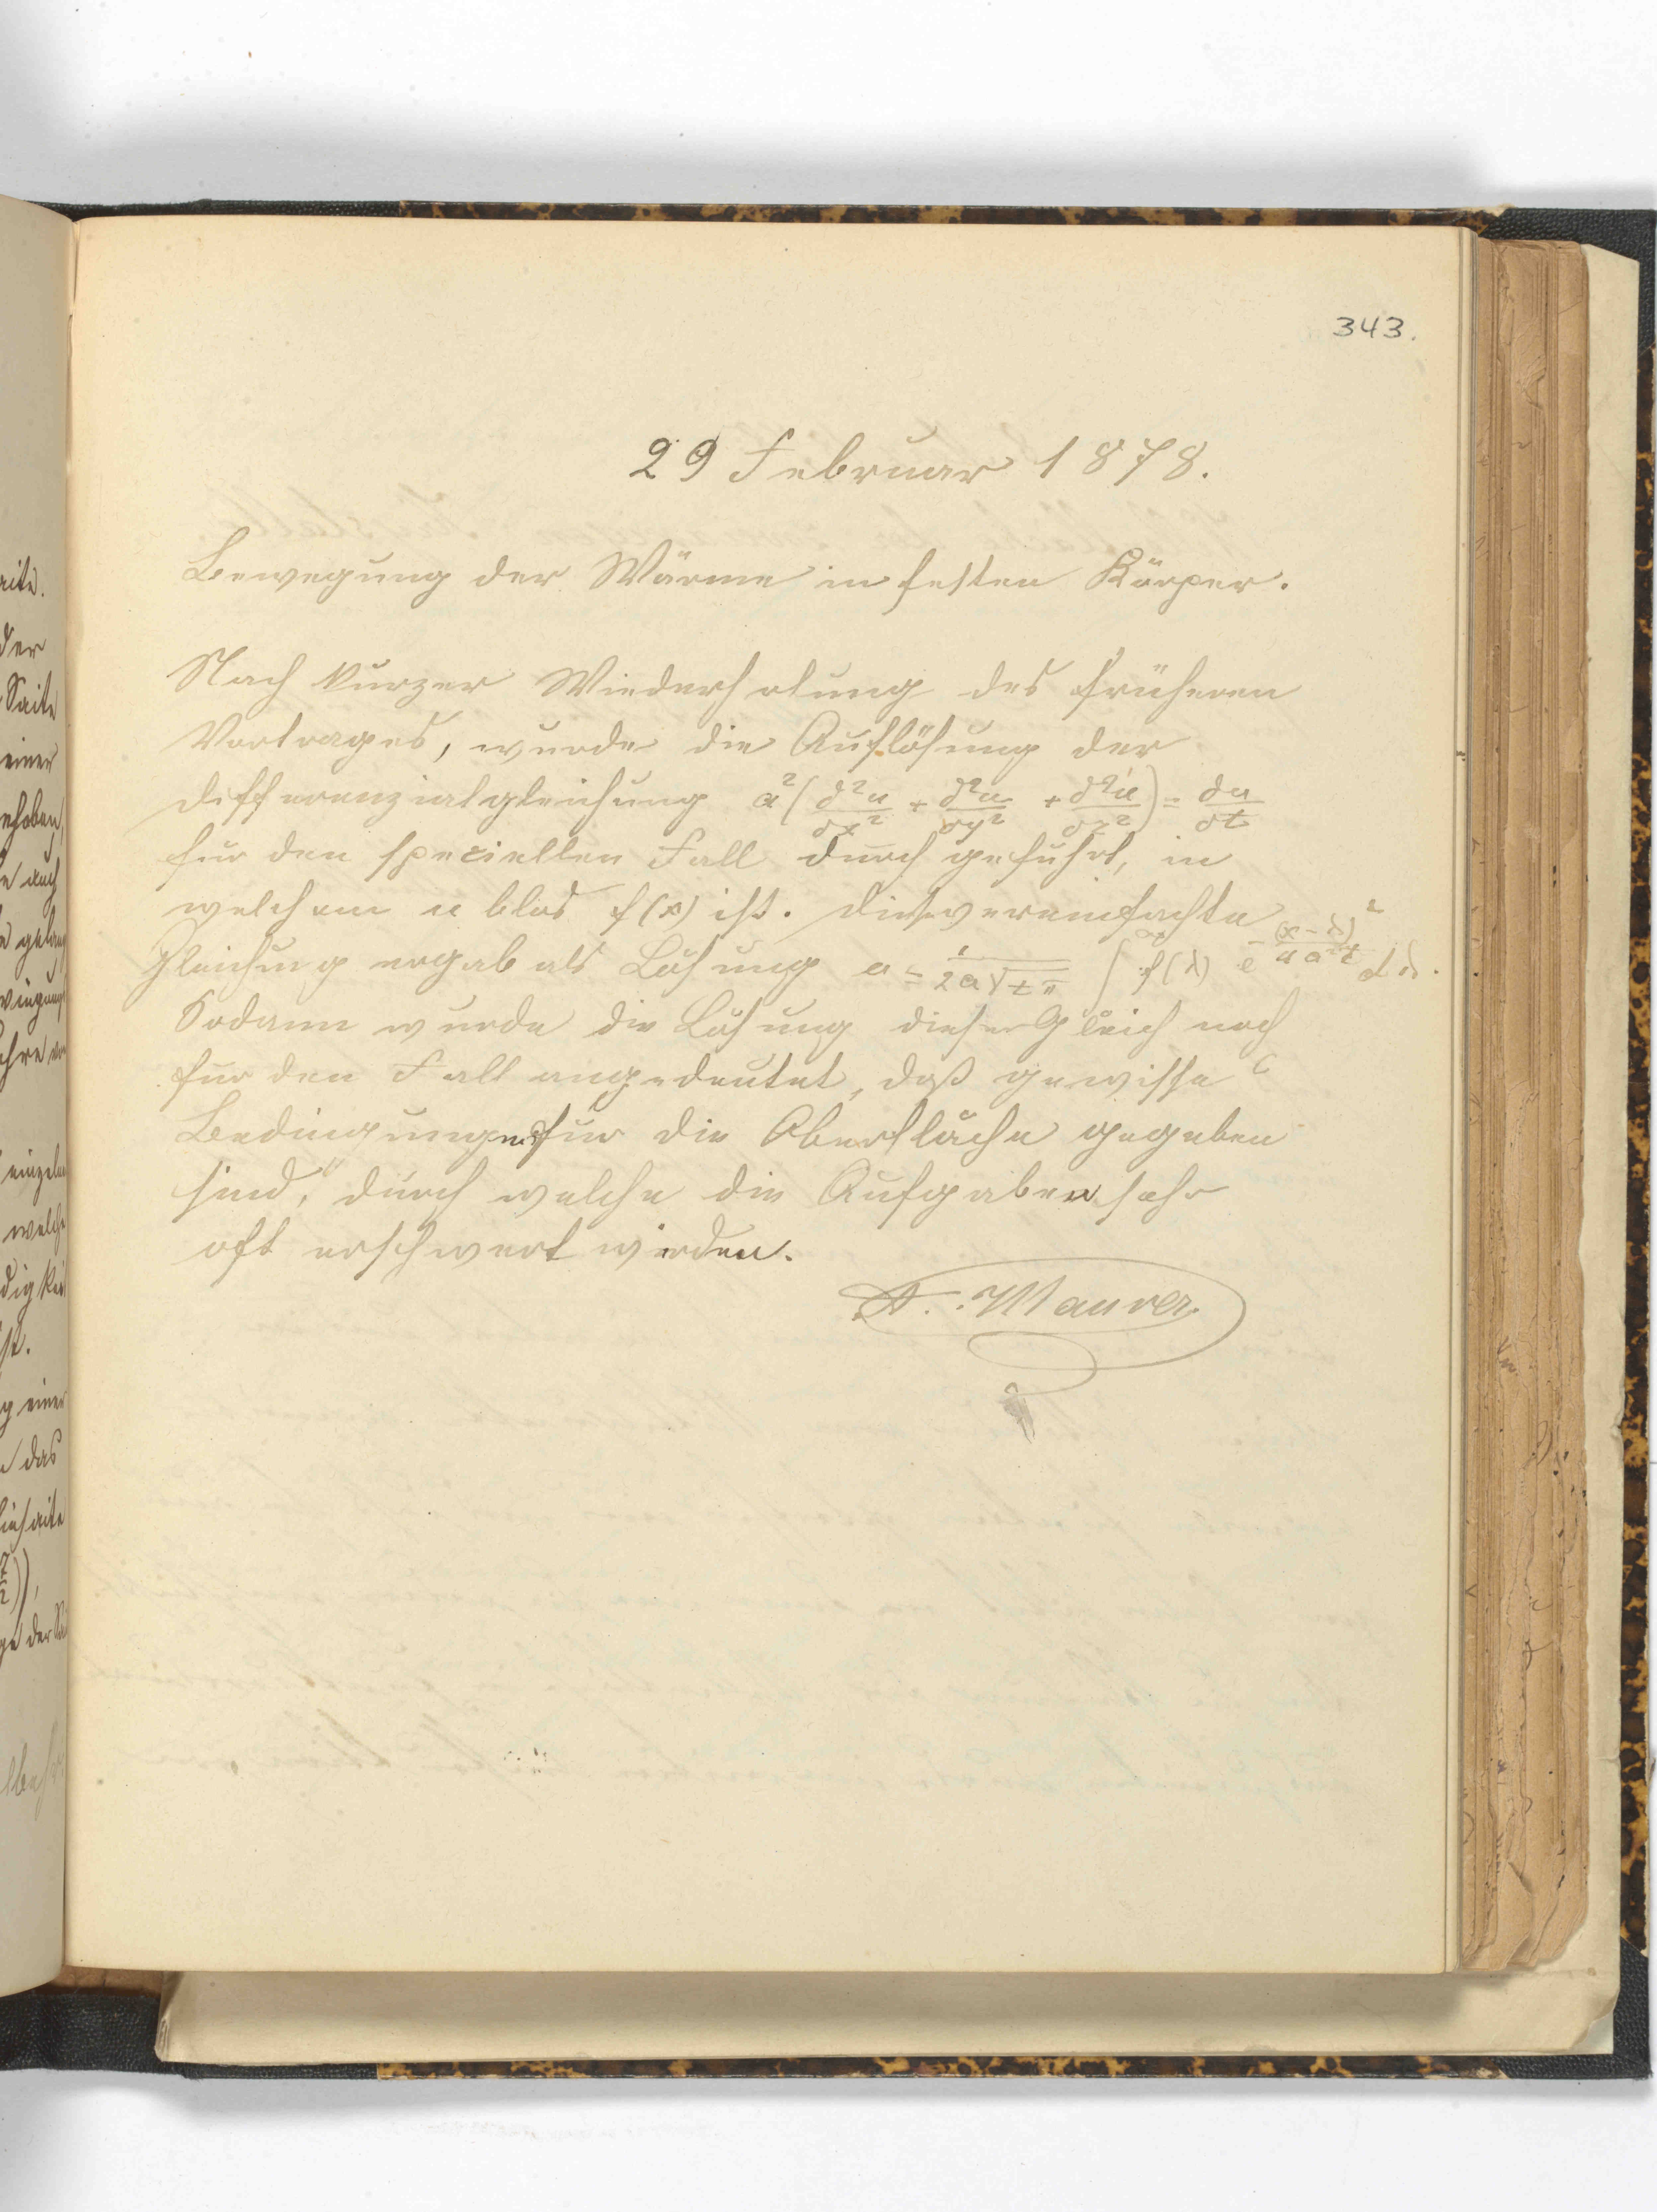 343.
29 Februar 1878.
Bewegung der Wärme in festen Körper.
Nach kurzer Wiederholung des früheren
Vortrages, wurde die Auflösung der
Differenzialgleichung a²(d²u/dx² + d²u/dy² + d²u/dz²) = du/dt
für den speciellen Fall durchgeführt, in
welchem u blos f(x) ist. Diese vereinfachte
Gleichung ergab als Lösung u = 1/2a√tπ ∫ f(λ) e^-(x-λ)²/4a²t dλ.
Sodann wurde die Lösung dieser Gleich noch
für den Fall angedeutet, daß gewisse
Bedingungen für die Oberfläche gegeben
sind, durch welche die Aufgaben sehr
oft erschwert werden.
A. Maurer.
aite.
der
Saite
einer
ehoben,
auch
einzeln
welche
digkei
st.
g einer
das